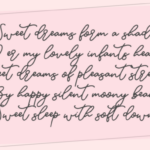 Sweet dreams form a shad
O'er my lovely infants hea
eet dreams of pleasant stre
By happy silent moony bea
Sweet sleep with soft down